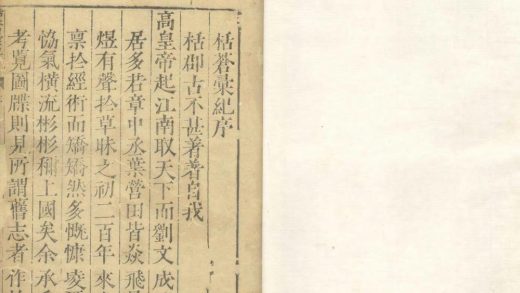 栝蒼彙紀序
栝郡古不甚著著自我
高皇帝起江南取天下而劉文成
居多若章中丞葉營田皆焱飛
煜有聲扵草昧之初二百年來
禀扵經術而矯矯然多慨慷凌
恊氣橫流彬彬稱上國矣余承
考覽圖牒則見所謂舊志者作